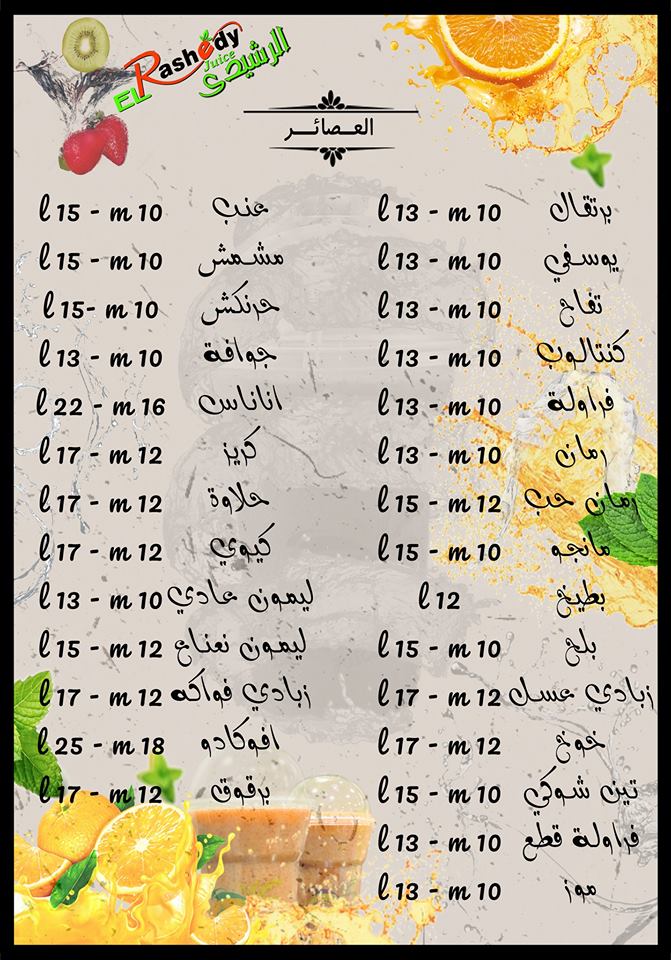 EL Rashedy
Juice
الرشيدى
العصائر
برتقال l 13 - m 10
يوسفي l 13 - m 10
تفاح l 13 - m 10
كنتالوب l 13 - m 10
فراولة l 13 - m 10
رمان l 13 - m 10
رمان حب l 15 - m 12
مانجو l 15 - m 10
بطيخ l 12
بلح l 15 - m 10
زبادي عسل l 17 - m 12
خوخ l 17 - m 12
تين شوكي l 15 - m 10
فراولة قطع l 13 - m 10
موز l 13 - m 10
عنب l 15 - m 10
مشمش l 15 - m 10
حرنكش l 15- m 10
جوافة l 13 - m 10
اناناس l 22 - m 16
كريز l 17 - m 12
حلاوة l 17 - m 12
كيوي l 17 - m 12
ليمون عادي l 13 - m 10
ليمون نعناع l 15 - m 12
زبادي فواكه l 17 - m 12
افوكادو l 25 - m 18
برقوق l 17 - m 12